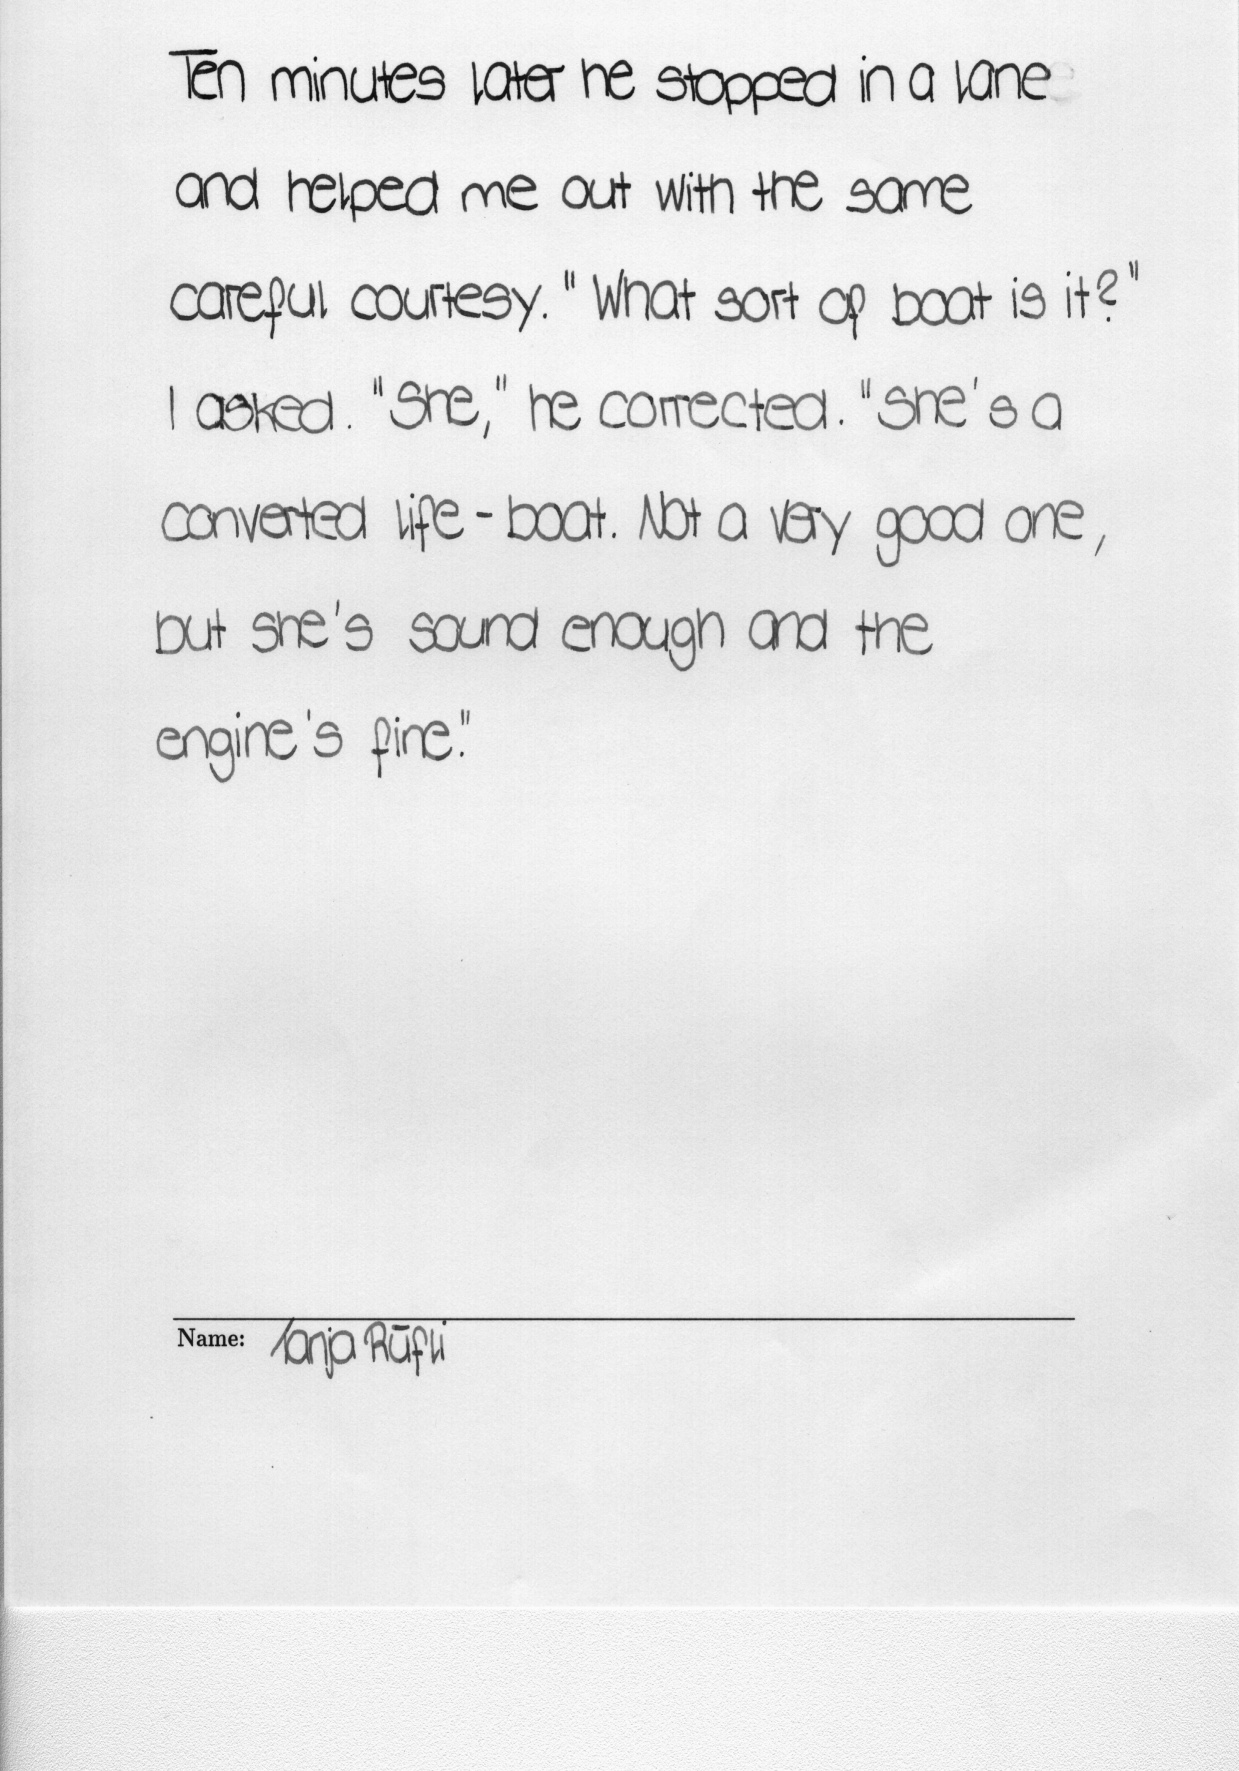 Ten minutes later he stopped in a lane
and helped me out with the same
careful courtesy. "What sort of boat is it?"
I asked. "She," he corrected. "She's a
converted life-boat. Not a very good one,
but she's sound enough and the
engine's fine."
Name: Tanja Rüfli